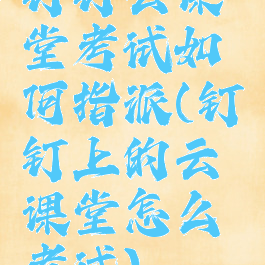 钉钉云课
堂考试如
何指派(钉
钉上的云
课堂怎么
考试)